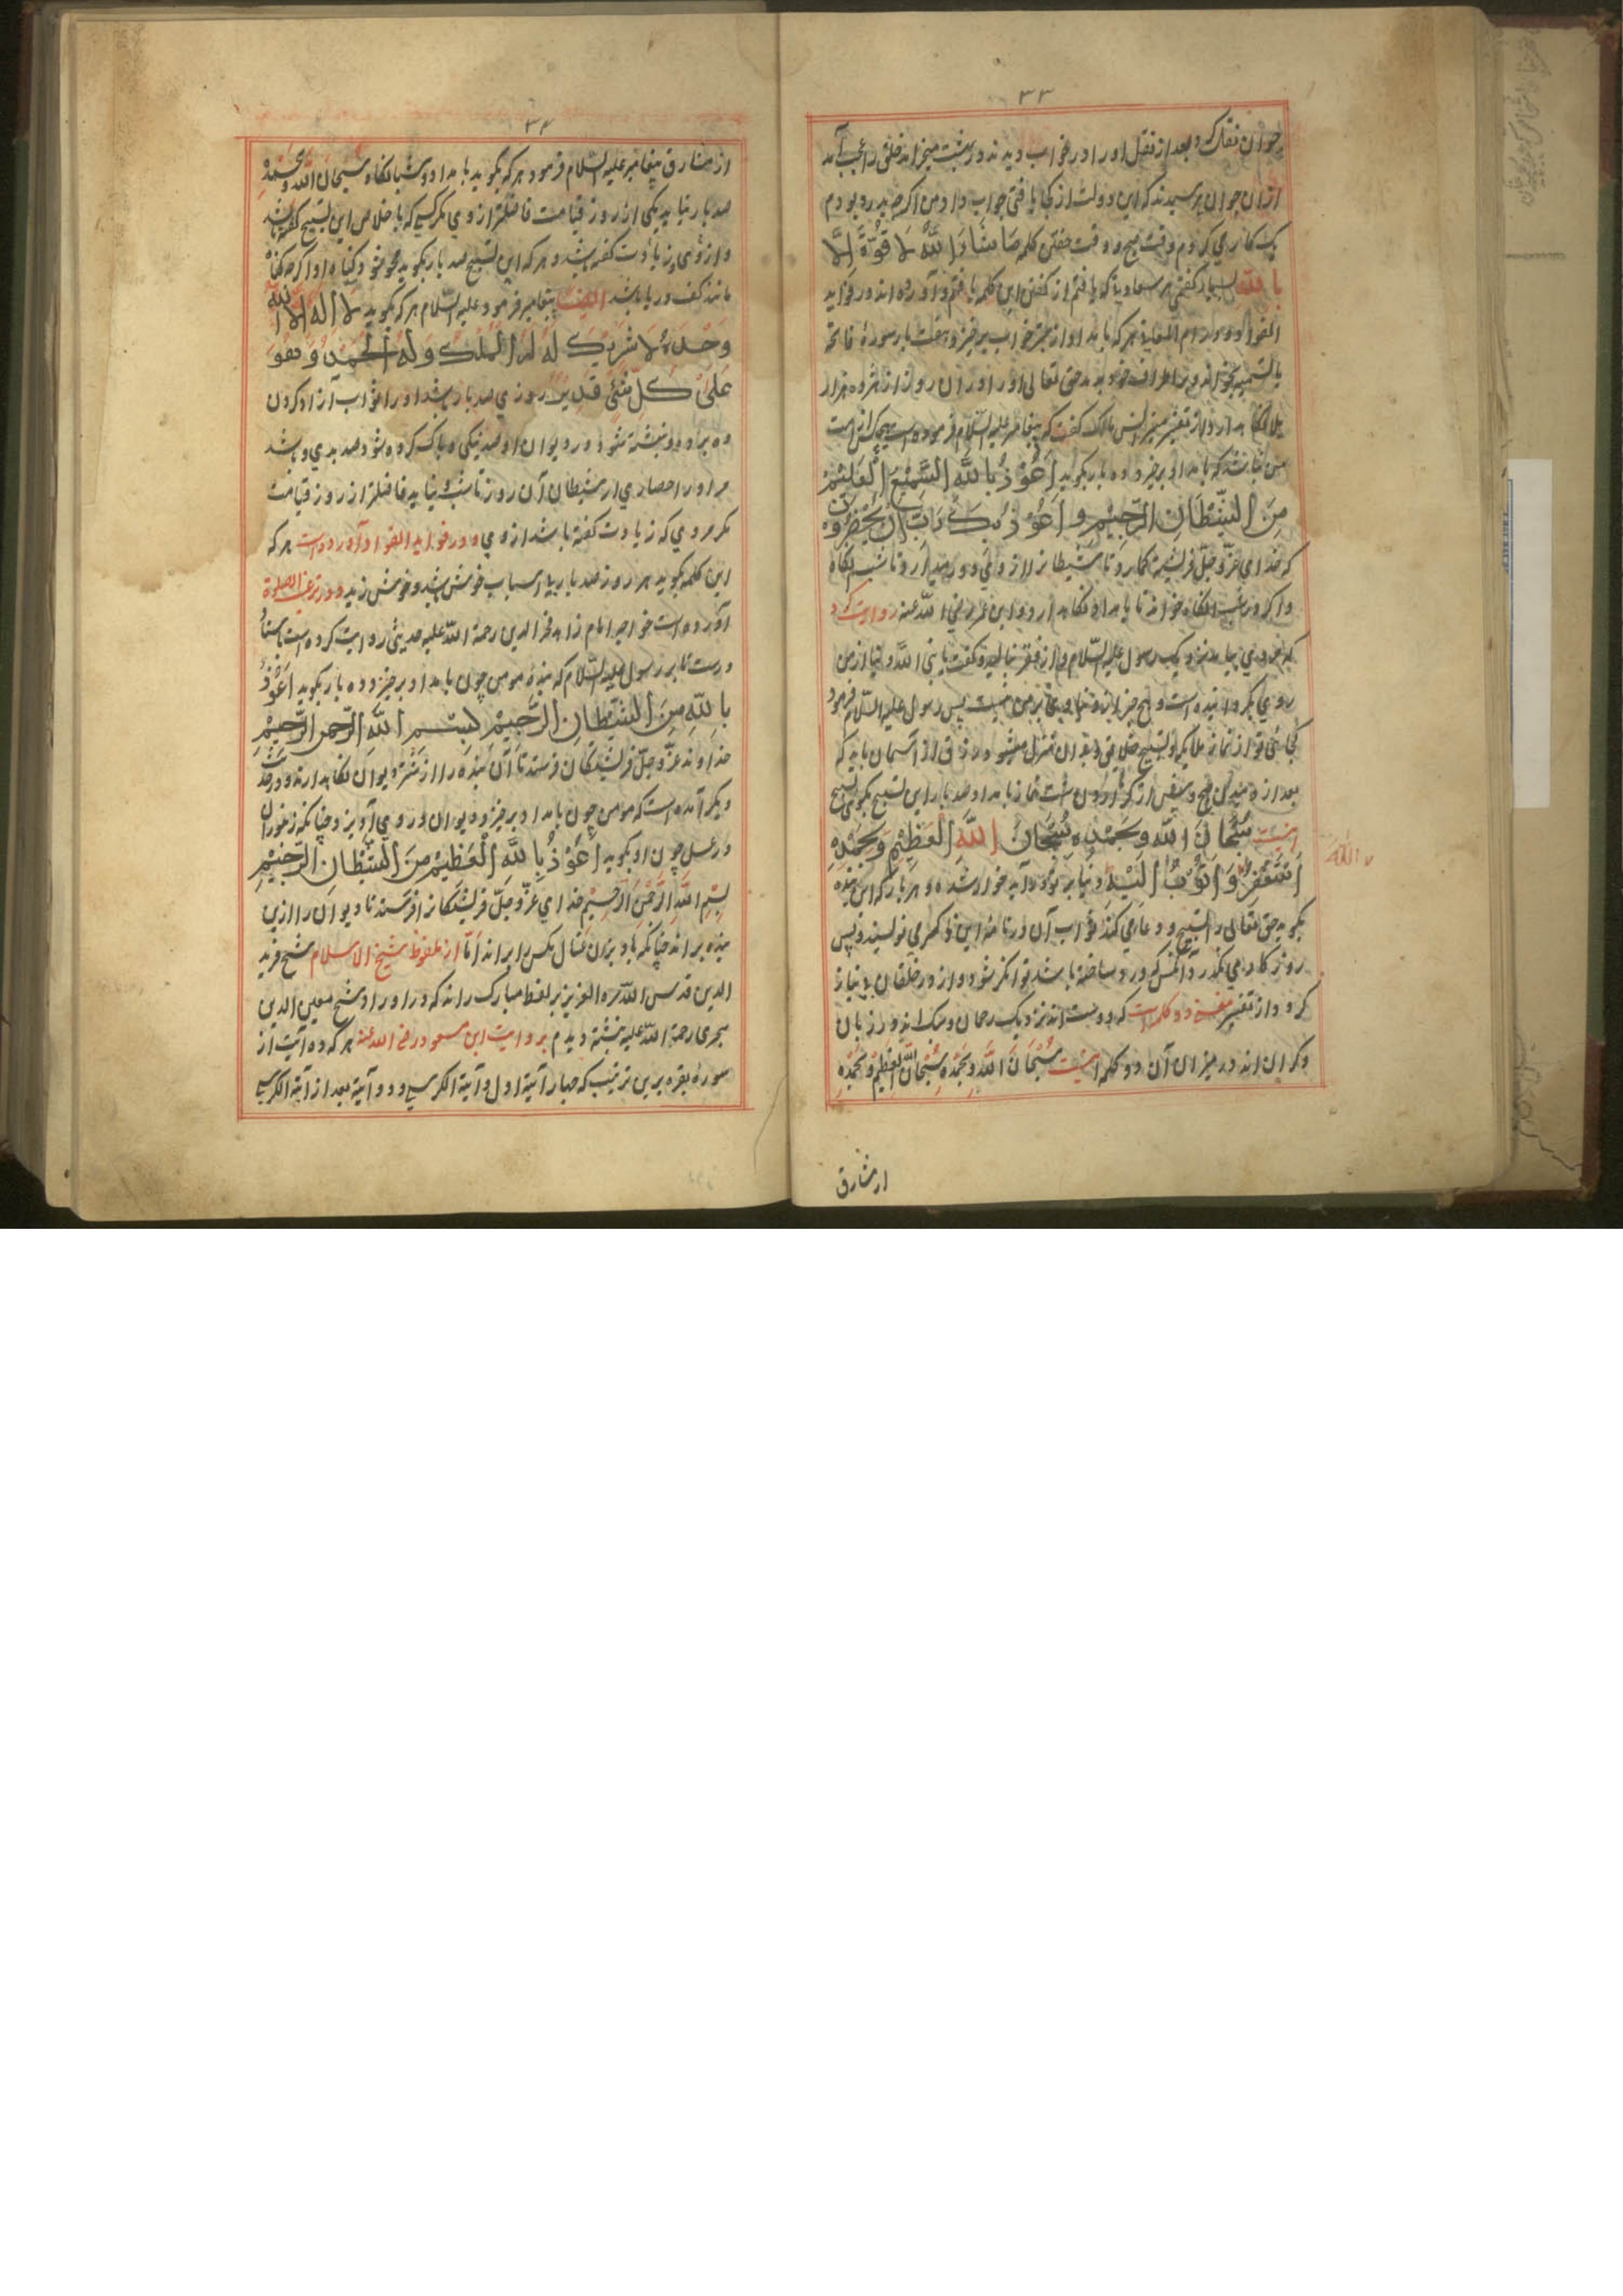 ۳۳
جوان نقل کرد بعد از نقل او را در خواب دیدند در بهشت میخرامد خلق را عجب آمد
ازان جوان پرسیدند که این دولت از کجا یافتی جواب داد من اگرچه بد بودم
یک کار می کردم وقت صبح و وقت خفتن کلمه مَا شَاءَ اللَّهُ لَا قُوَّةَ اِلَّا
بِاللَّهِ بسیار گفتمی هر سعادتی که یافتم از گفتن این کلمه یافتم و آورده اند در فواید
الفواد و در ام المعانی هر که بامداد از خواب برخیزد هفت بار سورهٔ فاتحه
با تسمیه بخواند و بر اطراف خود بدمد حق تعالی او را در آن روز از شر ده هزار
بلا نگاهدارد از تفسیر انس مالک گفت که پیغامبر علیه السّلام فرموده است هیچکس از امت
من نباشد که بامداد برخیزد و ده بار بگوید اَعُوْذُ بِاللَّهِ السَّمِيْعِ الْعَلِيْمِ
مِنَ الشَّيْطَانِ الرَّجِيْمِ وَ اَعُوْذُ بِكَ رَبِّ اَنْ يَحْضُرُوْنِ
که خدای عزّ و جلّ فرشته گمارد تا شیطان را از وی دور میدارد تا شبانگاه
و اگر در شبانگاه خواند تا بامداد نگاهدارد و ابن عمر رضی اللّه عنه روایت کرد
که مردی بیامد نزدیک رسول علیه السّلام و از فقر بنالید و گفت یا نبی اللّه دنیا از من
روی بگردانیده است و هیچ چیز از دنیاوی بر من نیست پس رسول علیه السّلام فرمود
کجائی تو از نماز ملایکه و تسبیح خلایق که بدان تنزل میشود رزق از آسمان باید که
بعد از دمیدن صبح و پیش از گزاردن سنت نماز بامداد صد بار این تسبیح بگوئی تسبیح
اینست سُبْحَانَ اللَّهِ وَبِحَمْدِهِ سُبْحَانَ اللَّهِ الْعَظِيْمِ وَبِحَمْدِهِ
اَسْتَغْفِرُ وَ اَتُوْبُ اِلَيْهِ دنیا بر تو درآید خوار شده و هر بار که این بنده
بگوید حق تعالی را تسبیح و دعا می کند ثواب آن در نامهٔ این ذاکر می نویسند پس
روزگار می گذرد آنکس که درد ساخته باشد توانگر شود و از در خلقان بی نیاز
گردد و از تفسیر مغنی دو کلمه است که دوست اند نزدیک رحمان و سبک اند در زبان
و گران اند در میزان آن دو کلمه اینست سُبْحَانَ اللَّهِ وَبِحَمْدِهِ سُبْحَانَ اللَّهِ الْعَظِيْمِ وَبِحَمْدِهِ
اللّه
از مشارق
۳۴
از مشارق پیغامبر علیه السّلام فرمود هر که بگوید بامداد و شبانگاه سُبْحَانَ اللَّهِ وَبِحَمْدِهِ
صد بار نیاید یکی از روز قیامت فاضلتر از وی مگر کسی که باخلاص این تسبیح گفته باشد
و از وی زیادت گفته باشد و هر که این تسبیح صد بار بگوید محو شود گناه او اگرچه گناه
مانند کف دریا باشد ایضا پیغامبر فرمود علیه السّلام هر که بگوید لَا اِلٰهَ اِلَّا اللَّهُ
وَحْدَهُ لَا شَرِيْكَ لَهُ لَهُ الْمُلْكُ وَ لَهُ الْحَمْدُ وَ هُوَ
عَلٰى كُلِّ شَيْءٍ قَدِيْرٌ روزی صد بار باشد او را ثواب آزاد کردن
ده برده و نبشته شود در دیوان او صد نیکی و پاک کرده شود صد بدی و باشد
مر او را حصاری از شیطان آن روز تا شب نیاید فاضلتر از روز قیامت
مگر مردی که زیادت گفته باشد از وی و در فواید الفواد آورده است هر که
این کلمه بگوید هر روز صد بار بی اسباب خوش باشد و خوش زید و در ترغیب الصلوة
آورده است خواجه امام زاهد فخر الدین رحمة اللّه علیه حدیثی روایت کرده است باسناد
درست تا بر رسول علیه السّلام که بندهٔ مومن چون بامداد برخیزد و ده بار بگوید اَعُوْذُ
بِاللَّهِ مِنَ الشَّيْطَانِ الرَّجِيْمِ بِسْمِ اللَّهِ الرَّحْمٰنِ الرَّحِيْمِ
خداوند عزّ و جلّ فرشتگان فرستد تا آن بنده را از شر دیوان نگاه دارند و در حدیث
دیگر آمده است که مومن چون بامداد برخیزد دیوان در وی آویزند چنانکه زنبوران
در عسل چون او بگوید اَعُوْذُ بِاللَّهِ الْعَظِيْمِ مِنَ الشَّيْطَانِ الرَّجِيْمِ
بِسْمِ اللَّهِ الرَّحْمٰنِ الرَّحِيْمِ خدای عزّ و جلّ فرشتگان را فرستد تا دیوان را ازین
بنده براند چنانکه بادبیزن مثال مگس را براند اما از ملفوظ شیخ الاسلام شیخ فرید
الدین قدس اللّه سره العزیز بر لفظ مبارک راند که در اوراد شیخ معین الدین
سجزی رحمة اللّه علیه نبشته دیدم بروایت ابن مسعود رضی اللّه عنه هر که ده آیت از
سورهٔ بقره برین ترتیب که چهار آیة اول و آیة الکرسی و دو آیة بعد از آیة الکرسی